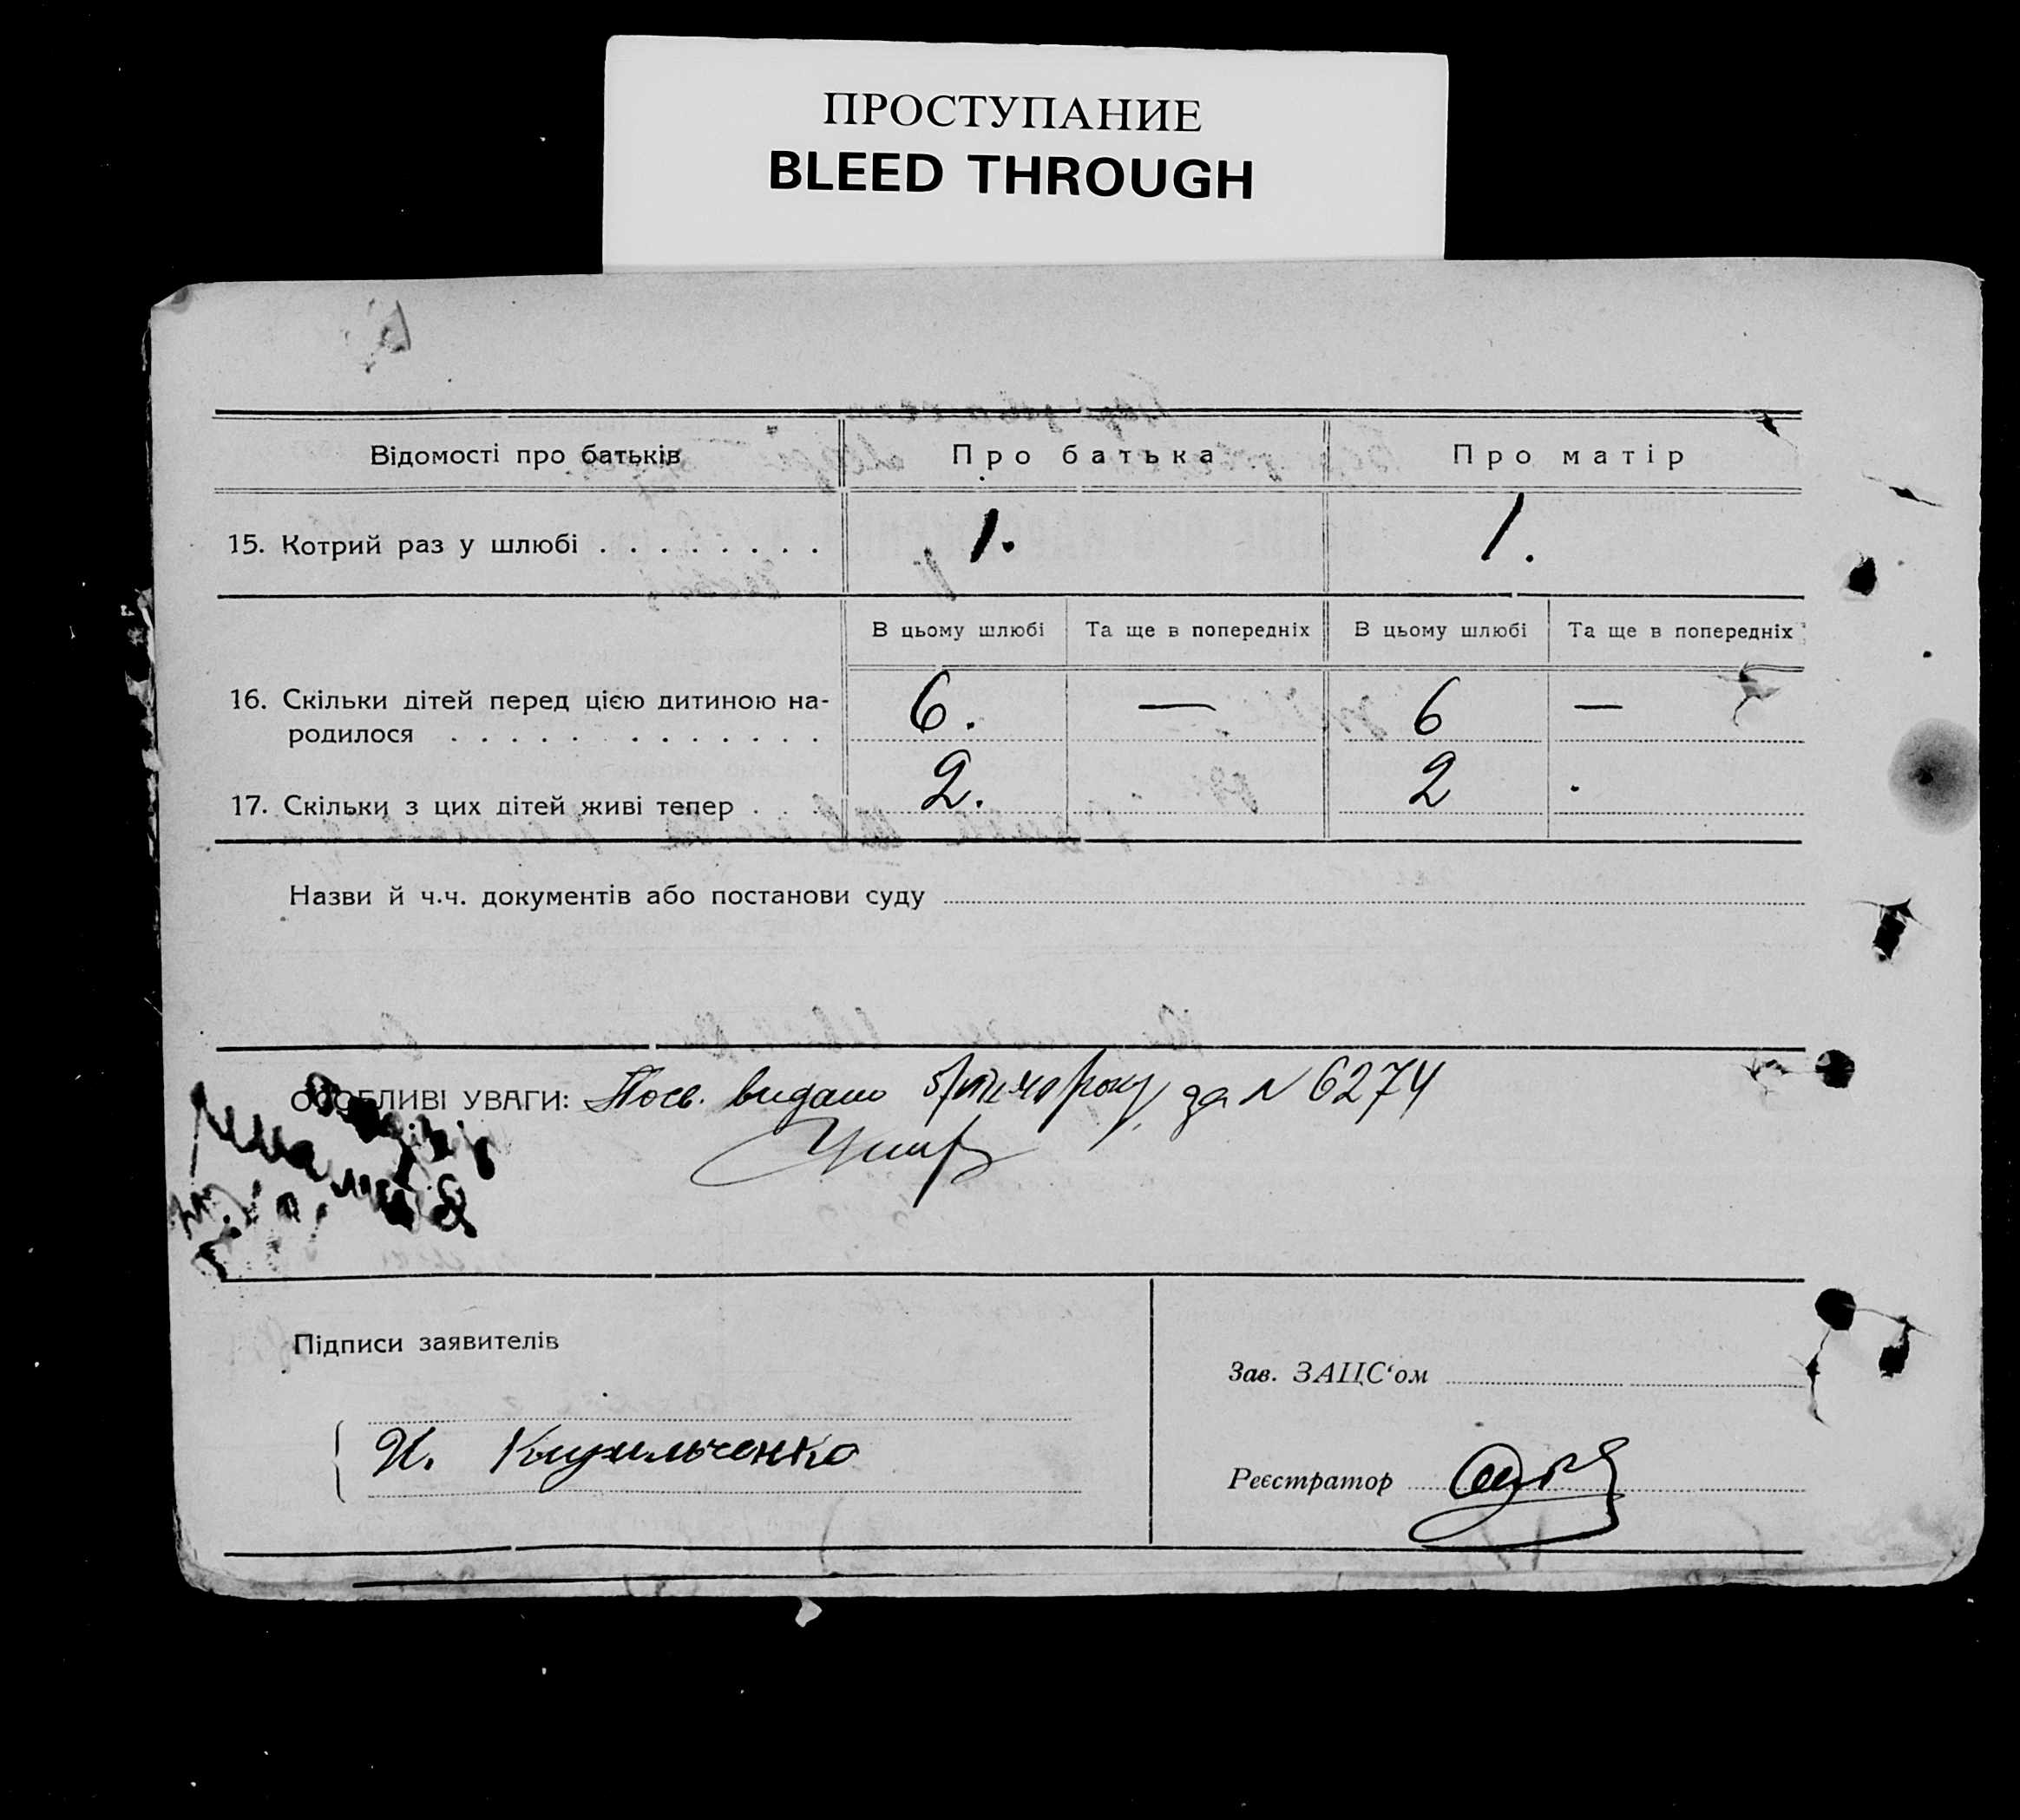 ПРОСТУПАНИЕ
BLEED THROUGH
Відомості про батьків Про батька Про матір
15. Котрий раз у шлюбі . . . . . . . . 1. 1.
В цьому шлюбі Та ще в попередніх В цьому шлюбі Та ще в попередніх
16. Скільки дітей перед цією дитиною на- 6. — 6 —
родилося . . . . . . . . . . . . .
17. Скільки з цих дітей живі тепер . . . 2. 2
Назви й ч.ч. документів або постанови суду
ОСОБЛИВІ УВАГИ: Посв. видано року за N 6274
Підписи заявителів
Зав. ЗАЦС‘ом
И.
Реєстратор